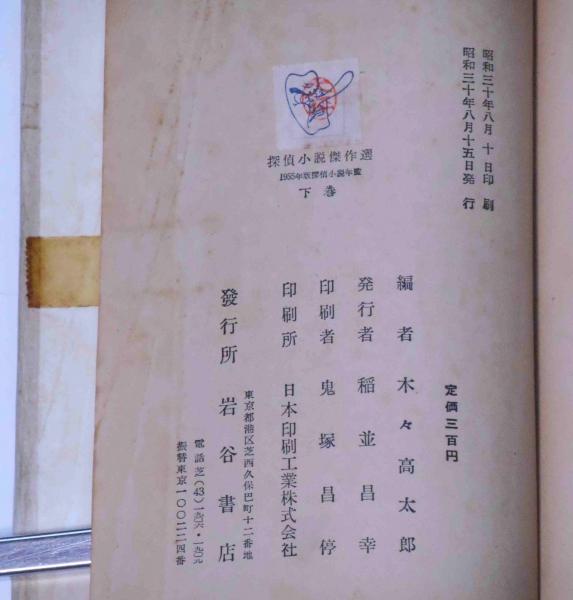 昭和三十年八月 十 日印 刷
昭和三十年八月十五日発 行
探偵小説傑作選
1955年版探偵小説年鑑
下巻
定価三百円
編者 木々高太郎
発行者 稲並昌幸
印刷者 鬼塚昌停
印刷所 日本印刷工業株式会社
東京都港区芝西久保巴町十二番地
發行所 岩谷書店
電話芝(43)
振替東京一〇〇二二四番